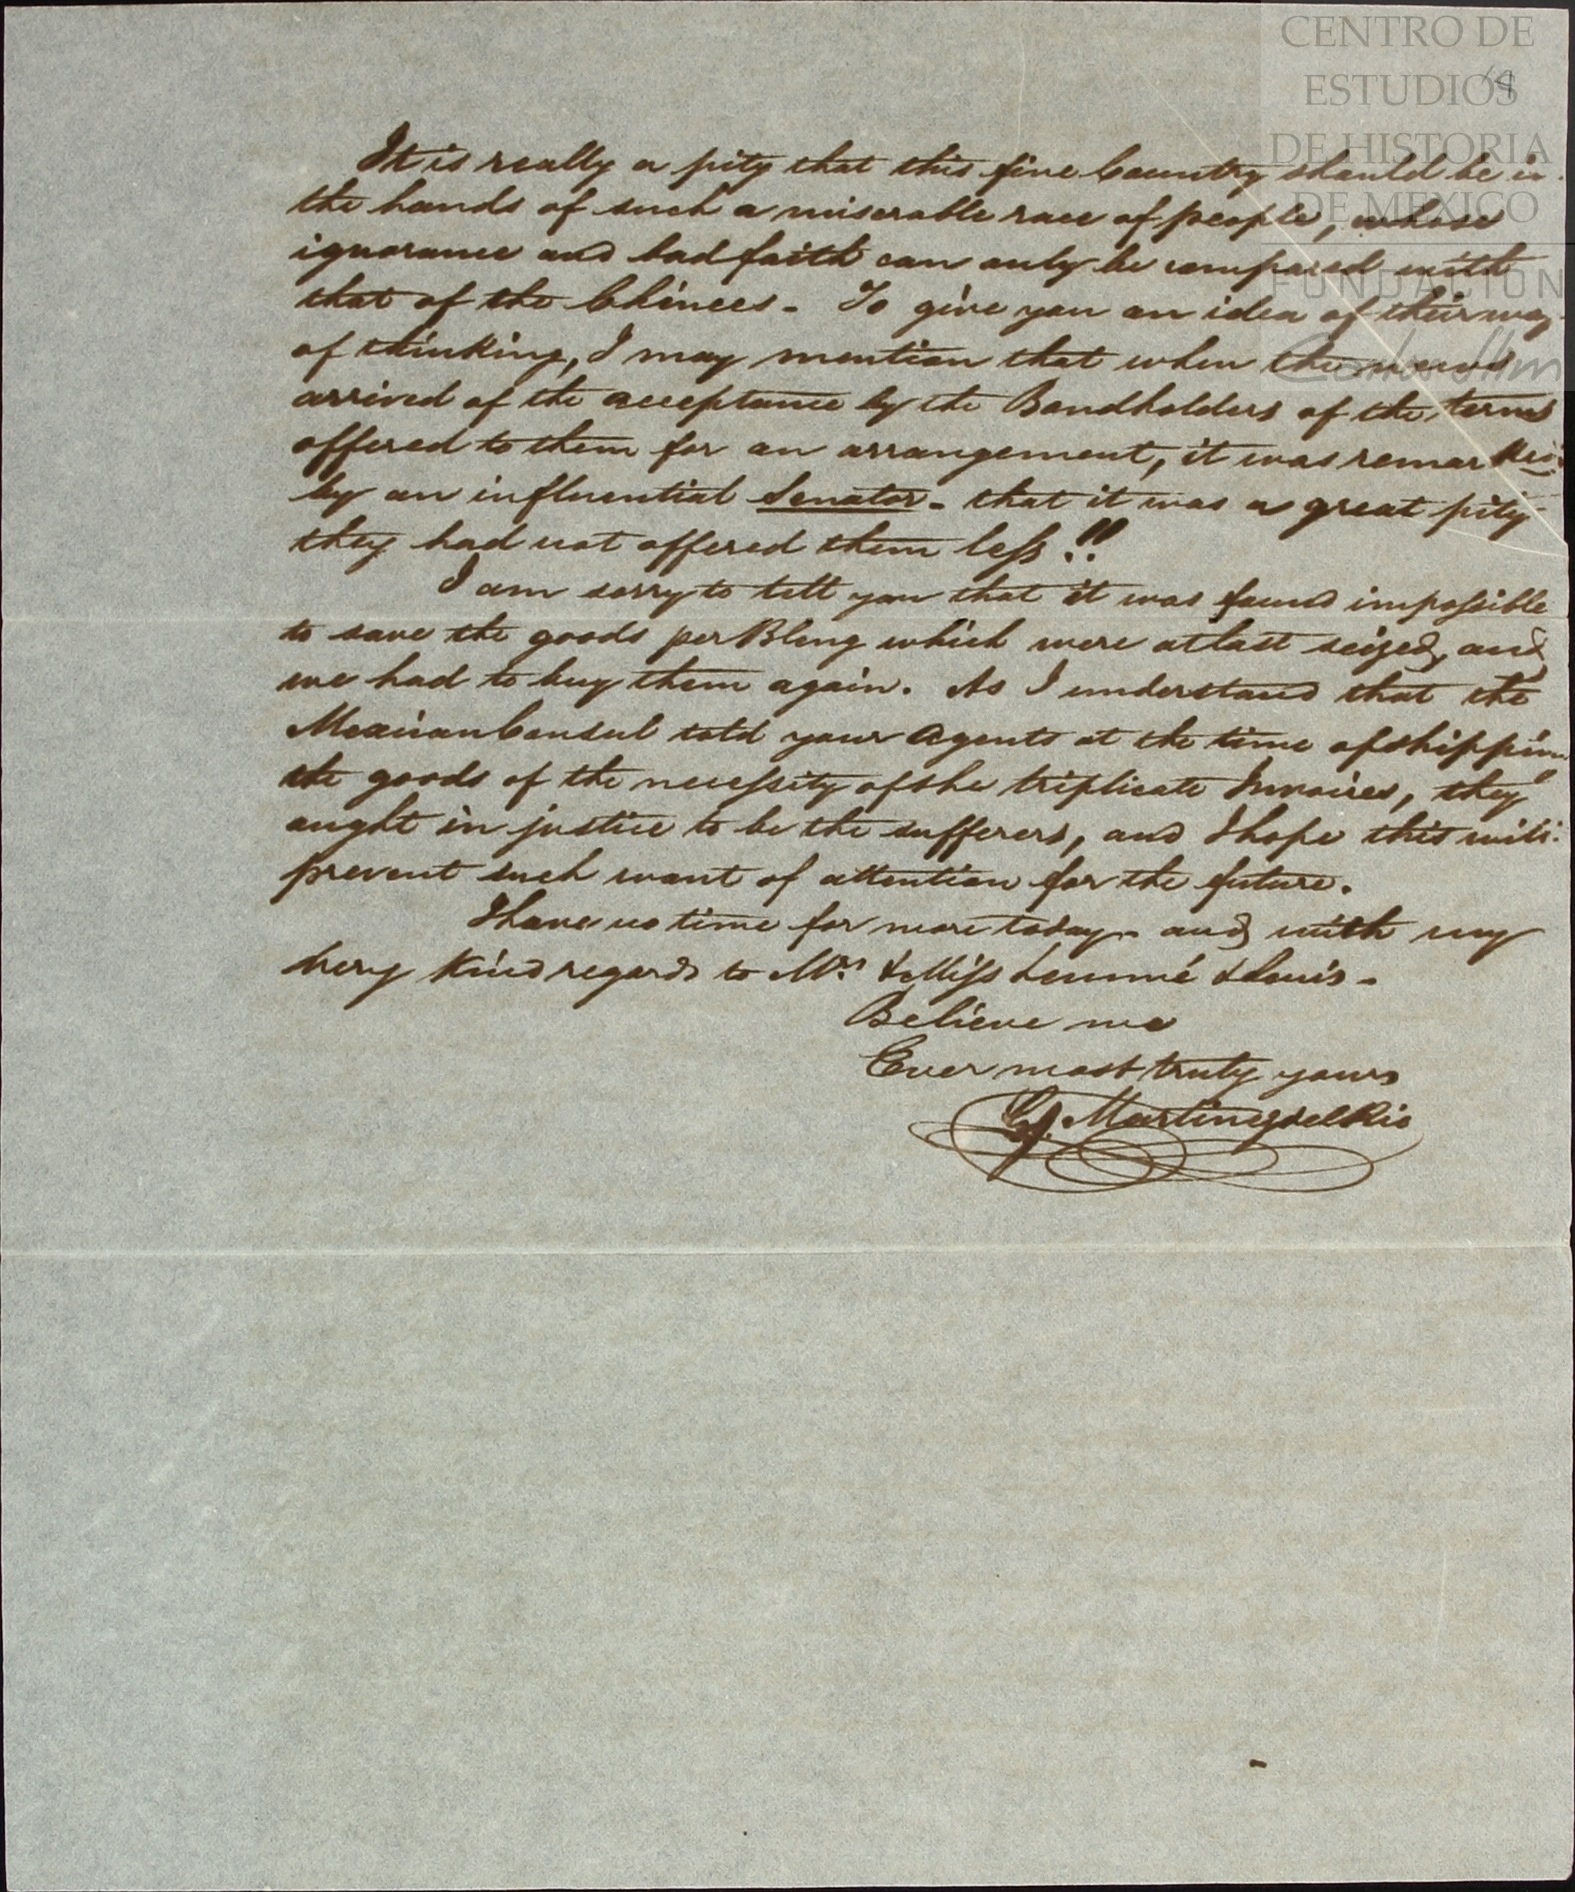 CENTRO DE
ESTUDIOS
DE HISTORIA
DE MEXICO
FUNDACIÓN
It is really a pity that this fine Country should be in
the hands of such a miserable race of people, whose
ignorance and bad faith can only be compared with
that of the Chinees - To give you an idea of their way
of thinking, I may mention that when the news
arrived of the acceptance by the Bondholders of the terms
offered to them for an arrangement, it was remarked
by an influential Senator - that it was a great pity
they had not offered them less!!
I am sorry to tell you that it was found impossible
to save the goods per Bleng which were at last seized, and
we had to buy them again. As I understand that the
Mexican Consul told your Agents at the time of shipping
the goods of the necessity of the triplicate Invoices, they
ought in justice to be the sufferers, and I hope this will
prevent such want of attention for the future.
I have no time for more today - and with my
very kind regards to Mrs. & Miss Lemmé & Louis -
Believe me
Ever most truly yours
Martinez del Rio